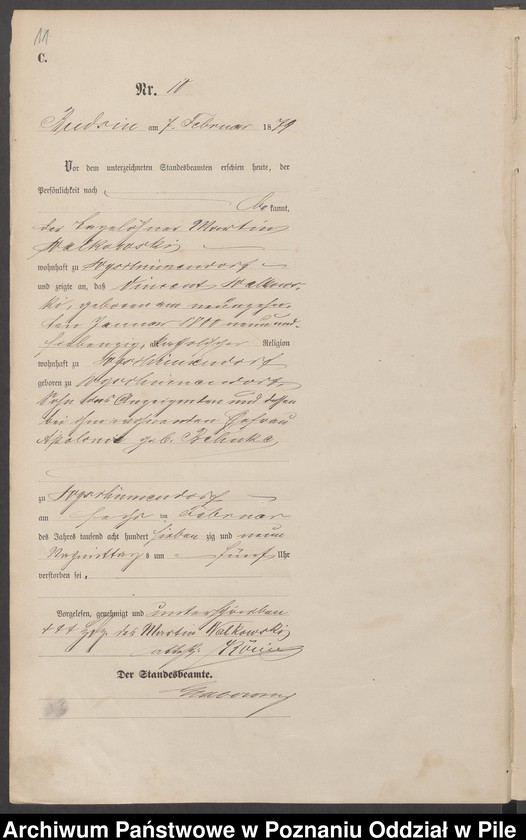 11
C.
Nr. 10
am 7. Februar 1879
Vor dem unterzeichneten Standesbeamten erschien heute, der
Persönlichkeit nach
bekannt,
der Tagelöhner Martin
Walkowski
wohnhaft zu
und zeigte an, daß Vincent Walkows-
ki, geboren am neunzehn-
ten Januar 1800 neun und
siebenzig, katholischer Religion
wohnhaft zu
geboren zu
Sohn des Anzeigenden und dessen
bei ihm wohnenden Ehefrau
Apolonia geb.
zu
am sechs ten Februar
des Jahres tausend acht hundert sieben zig und neun
Nachmittags um fünf Uhr
verstorben sei.
Vorgelesen, genehmigt und unterschrieben
+++ des Martin Walkowski
Der Standesbeamte.
Archiwum Państwowe w Poznaniu Oddział w Pile